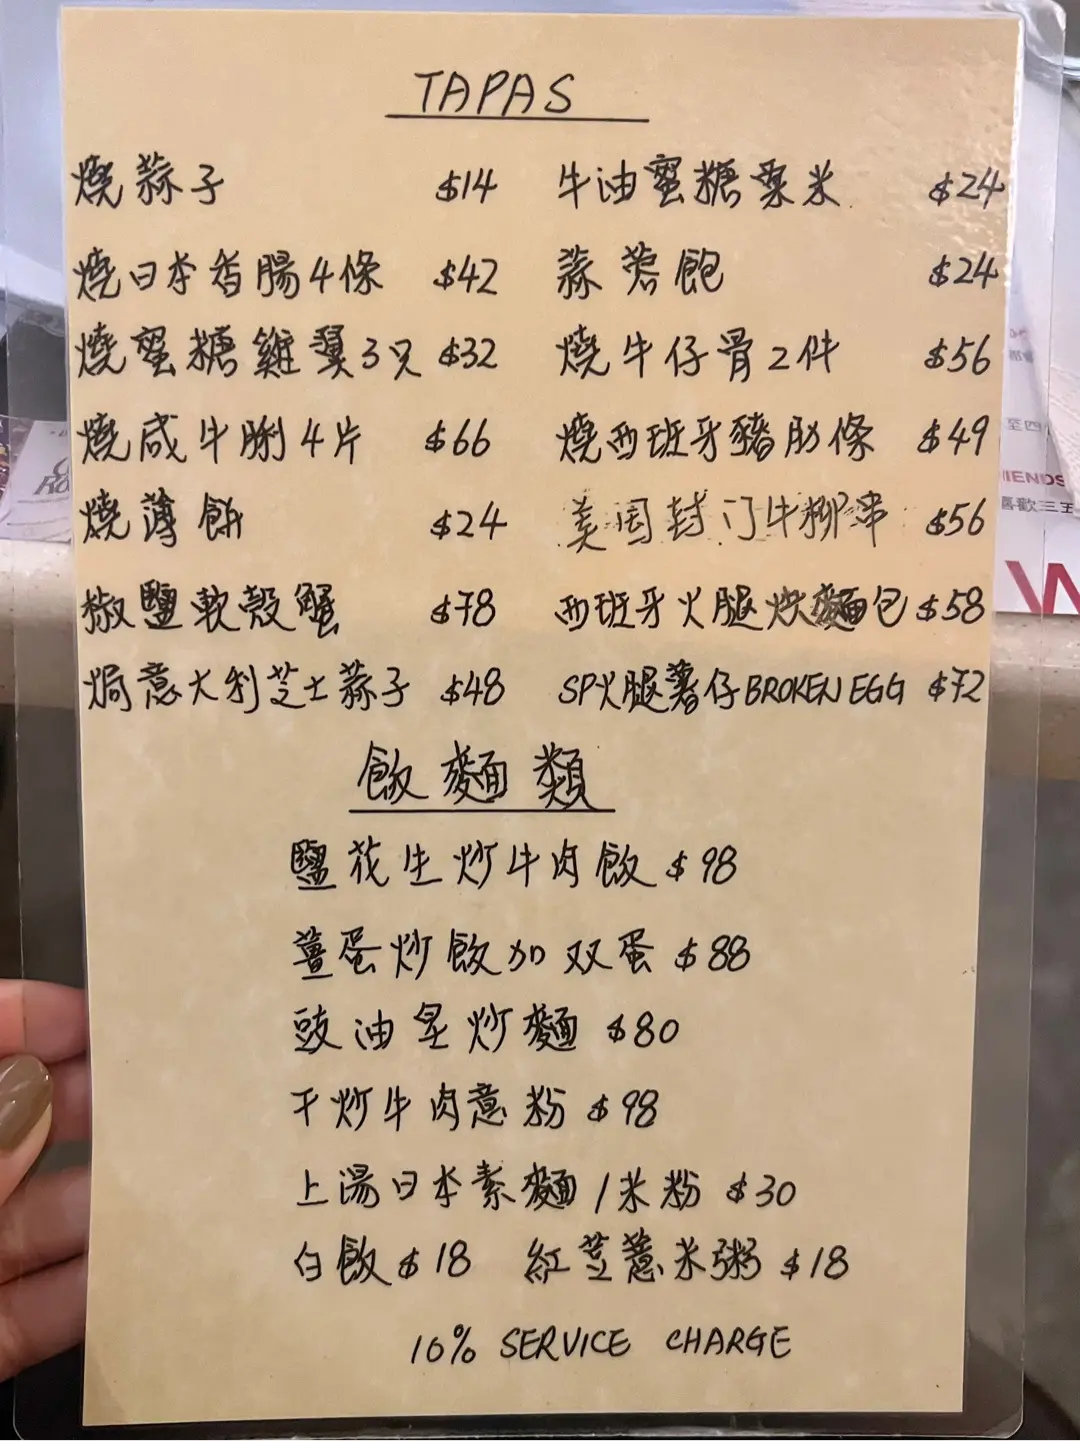 TAPAS
燒蒜子 $14 牛油蜜糖粟米 $24
燒日本香腸4條 $42 蒜蓉飽 $24
燒蜜糖雞翼3只 $32 燒牛仔骨2件 $56
燒咸牛脷4片 $66 燒西班牙豬肋條 $49
燒薄餅 $24 美国封门牛柳串 $56
椒鹽軟殼蟹 $78 西班牙火腿炏麵包 $58
焗意大利芝士蒜子 $48 SP火腿薯仔BROKEN EGG $72
飯麵類
鹽花生炒牛肉飯 $98
薑蛋炒飯加双蛋 $88
豉油皇炒麵 $80
干炒牛肉意粉 $98
上湯日本素麵/米粉 $30
白飯 $18 紅荳薏米粥 $18
10% SERVICE CHARGE